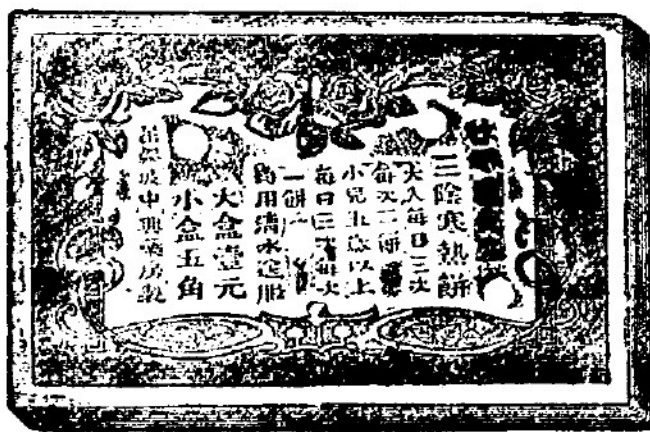 三陰寒熱餅
大人每日三次
每次二餅
小兒五歲以上
每日三次每次
一餅
均用清水送服
大盒壹元
小盒五角
坡中興藥房製